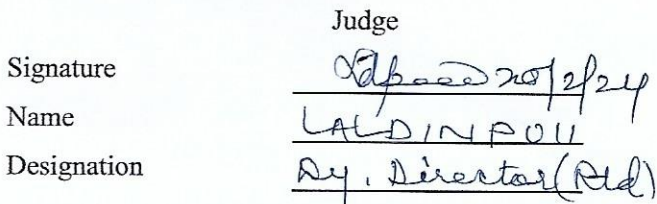 Judge
Signature 20/2/24
Name LALDINPUII
Designation Dy. Director (Rtd)